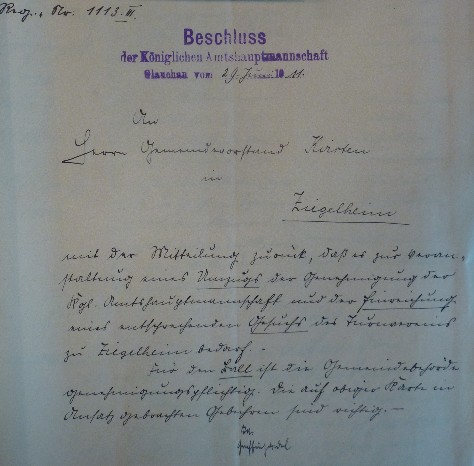 Reg., No. 1113.III.
Beschluss
der Königlichen Amtshauptmannschaft
Glauchau vom 29. Juni 1911.
An
Herrn Gemeindevorstand Kirsten
in
Ziegelheim
mit der Mitteilung zurück, daß es zur Veran-
staltung eines Umzugs der Genehmigung der
Kgl. Amtshauptmannschaft und der Einreichung
eines entsprechenden Gesuchs des Turnvereins
zu Ziegelheim bedarf.
Für den Ball ist die Gemeindebehörde
genehmigungspflichtig. Die auf obiger Karte in
Ansatz gebrachten Gebühren sind richtig.